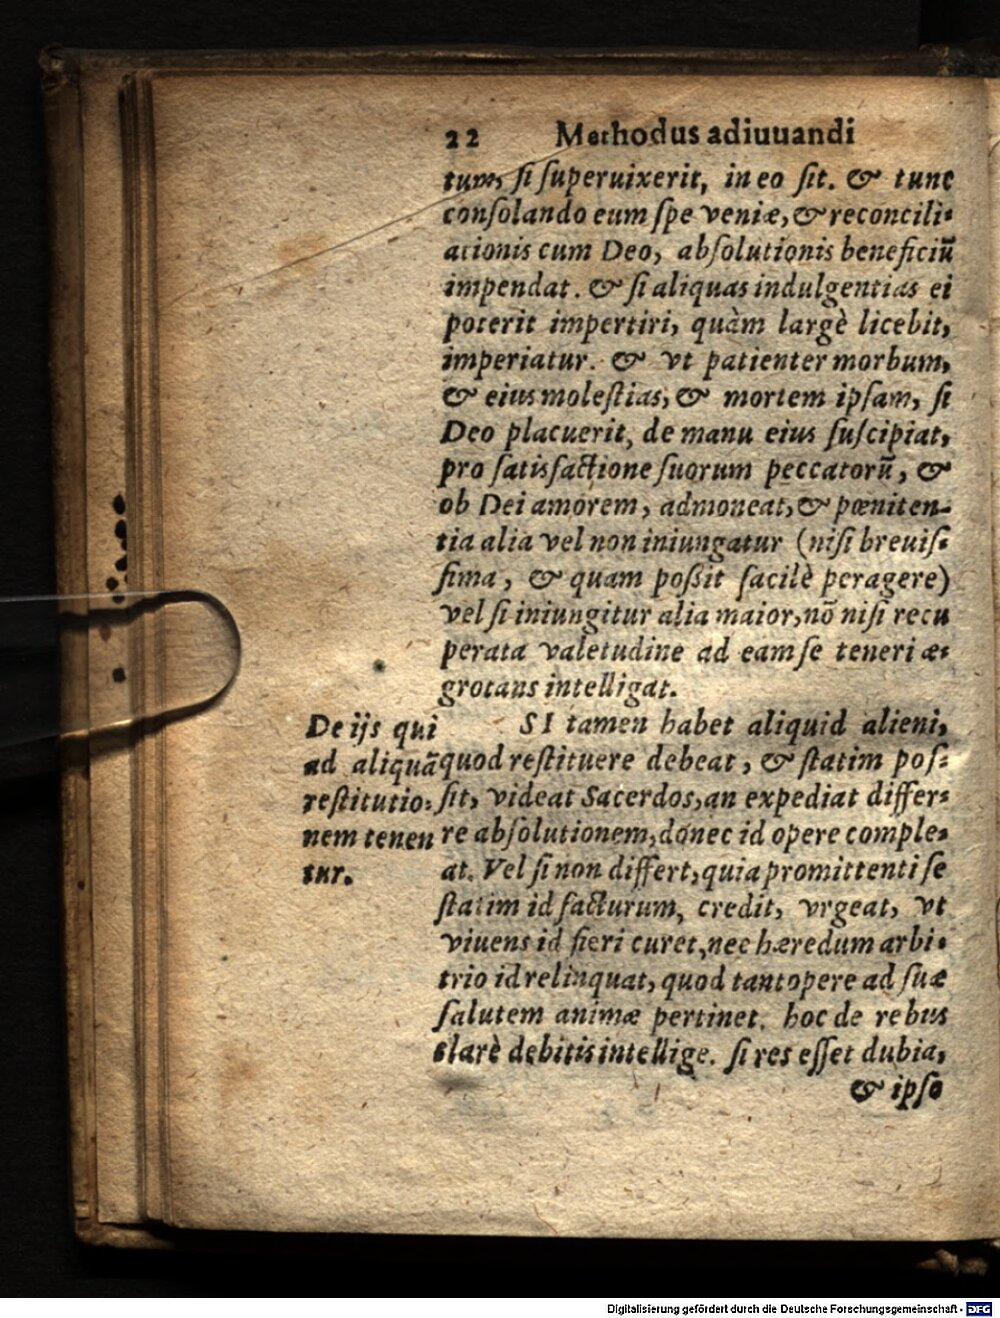 22 Methodus adiuuandi
tum, si superuixerit, in eo sit. & tunc
consolando eum spe veniæ, & reconcili-
ationis cum Deo, absolutionis beneficiũ
impendat. & si aliquas indulgentias ei
poterit impertiri, quàm largè licebit,
imperiatur. & vt patienter morbum,
& eius molestias, & mortem ipsam, si
Deo placuerit, de manu eius suscipiat,
pro satisfactione suorum peccatorũ, &
ob Dei amorem, admoneat, & pœniten-
tia alia vel non iniungatur (nisi breuis-
sima, & quam poßit facilè peragere)
vel si iniungitur alia maior, nõ nisi recu
perata valetudine ad eam se teneri æ-
grotans intelligat.
De ijs qui
ad aliquã
restitutio-
nem tenen
tur.
SI tamen habet aliquid alieni,
quod restituere debeat, & statim pos-
sit, videat Sacerdos, an expediat differ-
re absolutionem, donec id opere comple-
at. Vel si non differt, quia promittenti se
statim id facturum, credit, vrgeat, vt
viuens id fieri curet, nec hæredum arbi-
trio id relinquat, quod tantopere ad suæ
salutem animæ pertinet. hoc de rebus
clarè debitis intellige. si res esset dubia,
& ipso
Digitalisierung gefördert durch die Deutsche Forschungsgemeinschaft - DFG